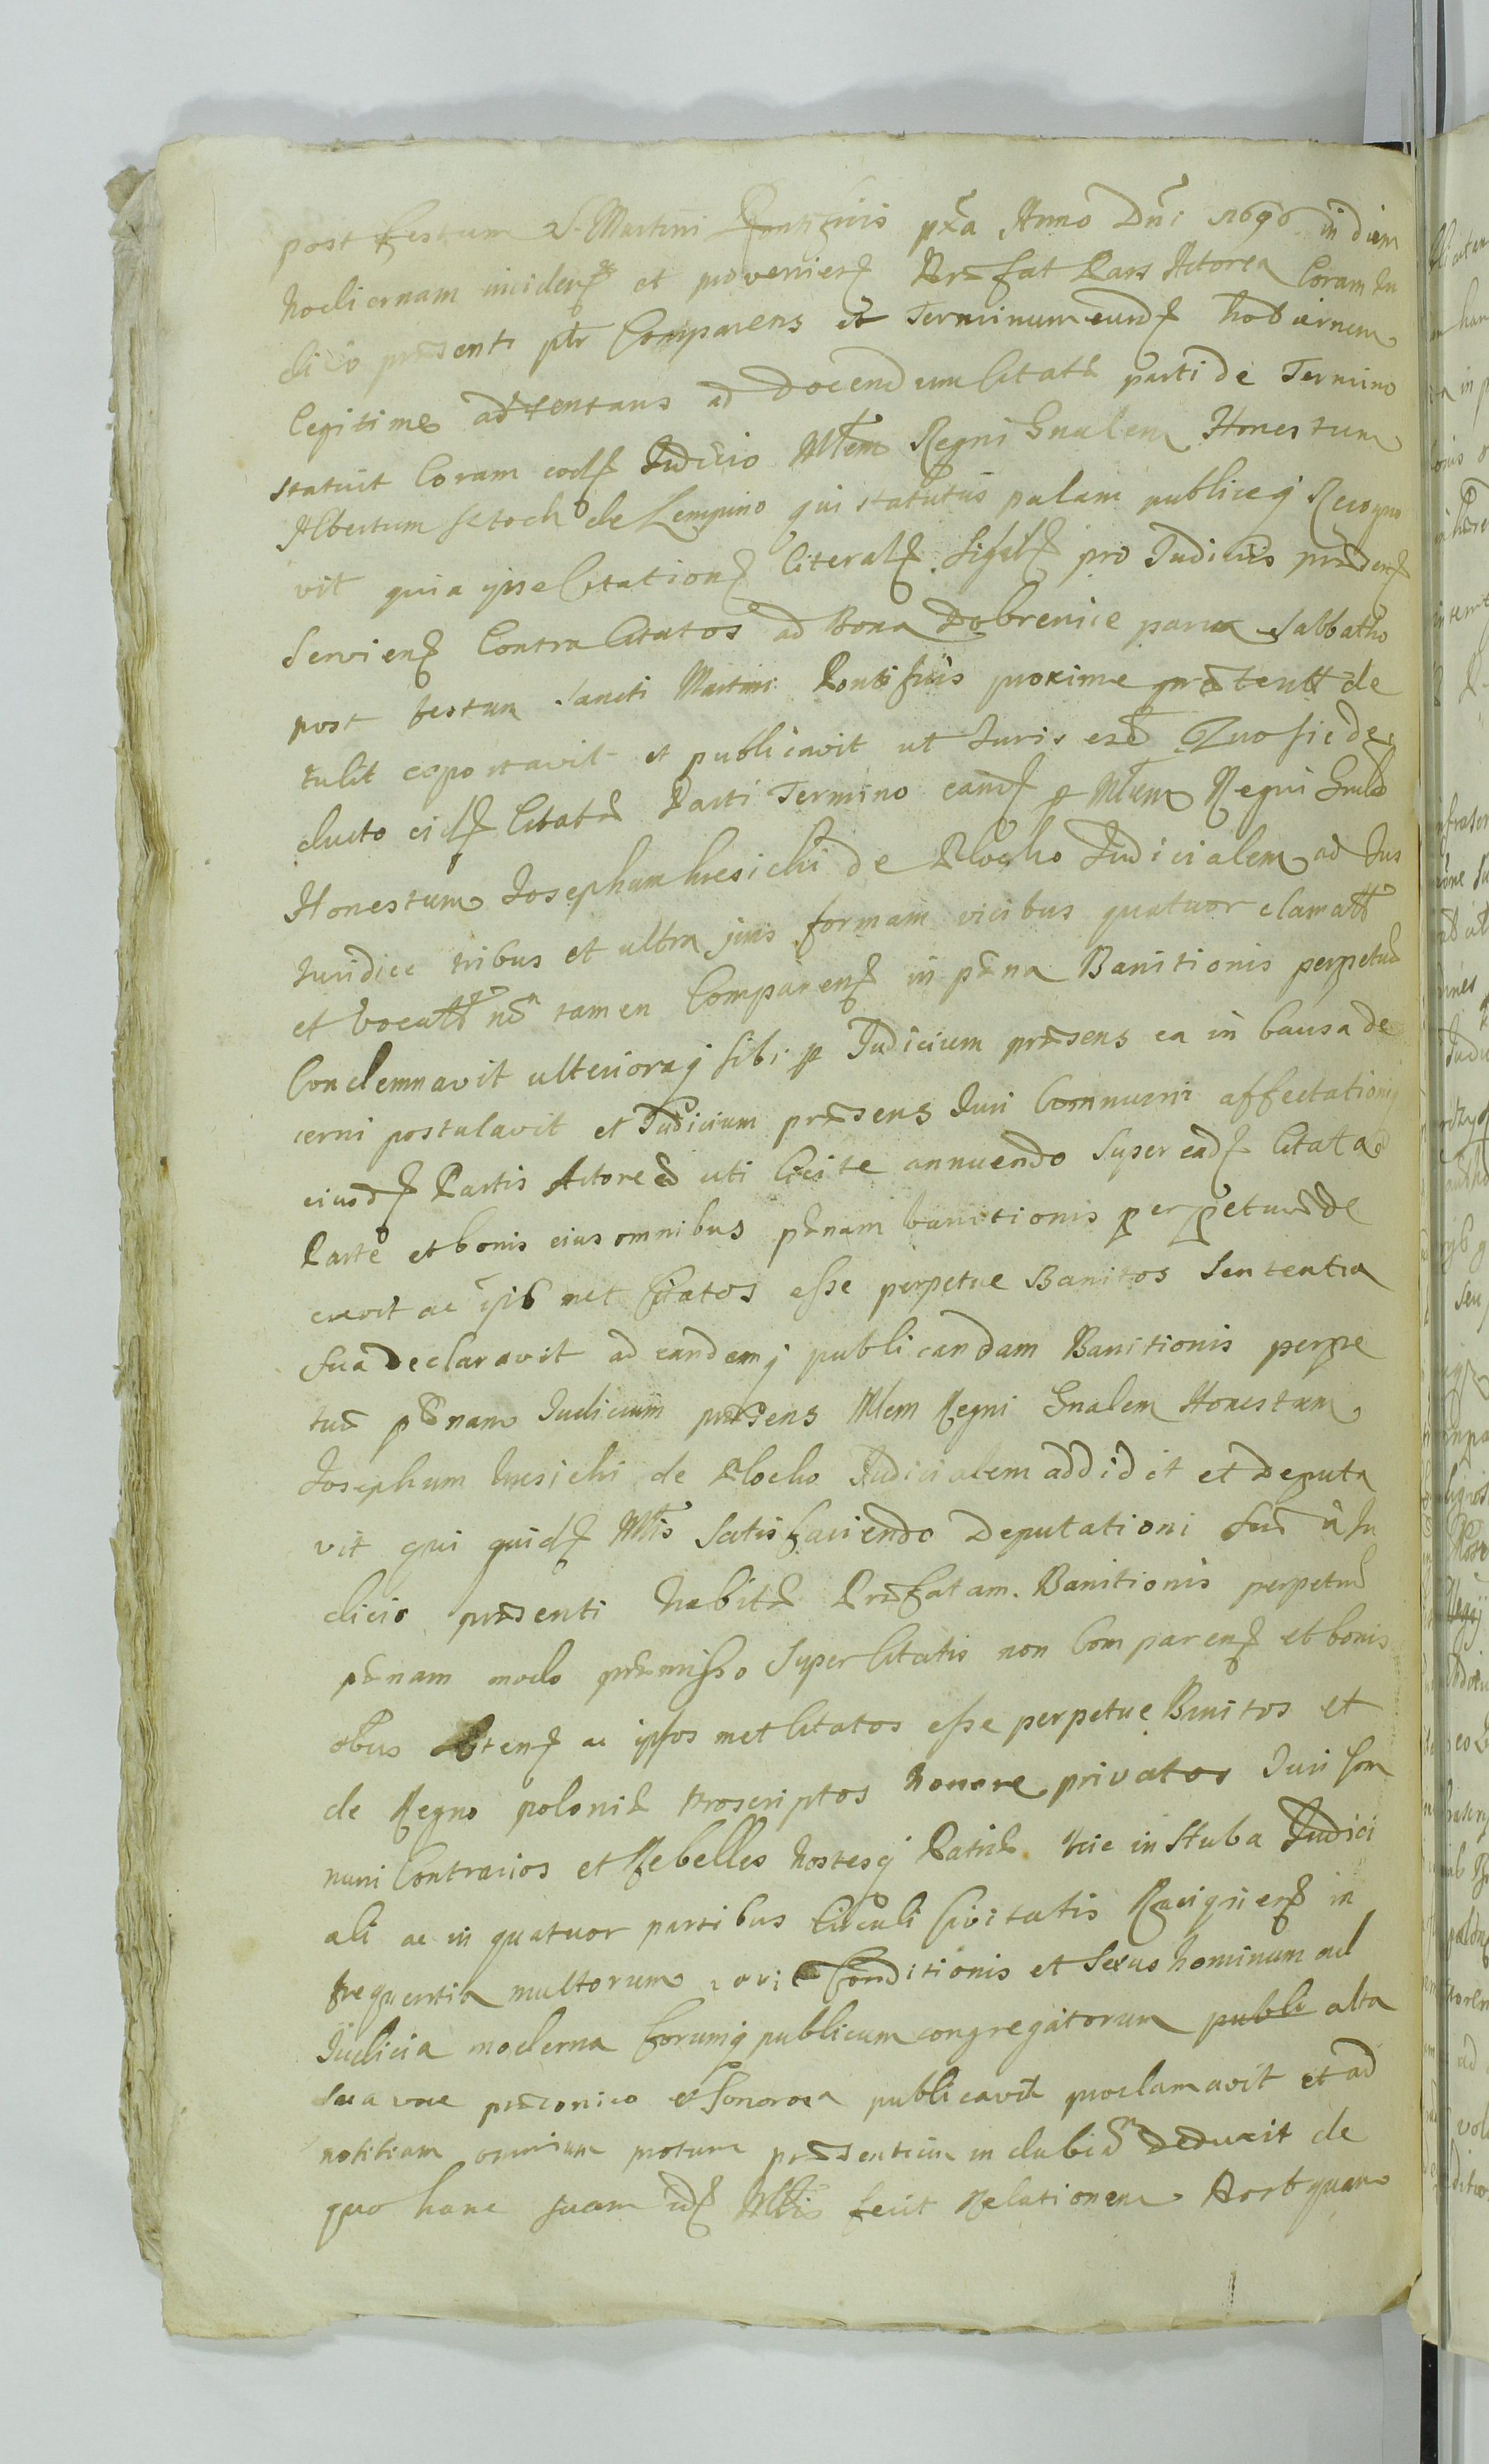 post festum S. Martini Pontificis pxa Anno Dni 1696 in diem
hodiernam inciden et provenien Præfat Pars Actorea Coram Iu
dicio præsenti ptr Comparens et Terminum eund hodiernum
legitime adtentans ad docendum Citatæ parti de Termino
statuit Coram eod Iudicio Mlem Regni Gnalem Honestum
Albertum de Lempino qui statutus palam publiceq Recogno
vit quia ipse Citation literal pro Iudiciis præsen
Servien Contra Citatos ad Bona Dobrenice parva Sabbatho
post festum Sancti Martini Pontificis proxime præterit de
tulit reportavit et publicavit ut Iuris est Quo sic de
ducto eid Citatæ Parti Termino eand p Mlem Regni Gnale
Honestum Iosephum de Plocko Iudicialem ad Ius
Iuridice tribus et ultra juris formam vicibus quatuor clamatt
et vocatt non tamen Comparen in pæna Banitionis perpetuæ
Condemnavit ulterioraq sibi p Iudicium præsens ea in Causa de
cerni postulavit et Iudicium præsens Iuri Communi affectationiq
eiusd Partis Actoreæ uti licite annuendo Super ead Citata
Parte et bonis eius omnibus pænam banitionis perpetuæ de
crevit ac met Citatos esse perpetue Banitos Sententia
sua declaravit ad eandemq publicandam Banitionis perpe
tuæ pænam Iudicium præsens Mlem Regni Gnalem Honestum
Iosephum de Plocko Iudicialem addidit et deputa
vit qui quid Mlis Satisfaciendo deputationi suæ a Iu
dicio præsenti habitæ Præfatam Banitionis perpetuæ
pænam modo præmisso Super Citatis non Comparen et bonis
obus ac ipsos met Citatos esse perpetue Banitos et
de Regno poloniæ proscriptos honore privatos Iuri Com
muni Contrarios et Rebelles hostesq Patriæ hic in Stuba Iudici
ali ac in quatuor partibus Circuli Civitatis in
frequentia multorum Conditionis et Sexus hominum ad
Iudicia moderna Forumq publicum congregatorum publi alta
sua voce præconico et Sonorosa publicavit proclamavit et ad
notitiam omnium præsentium deduxit de
quo hanc suam id Mlis fecit Relationem Postquam